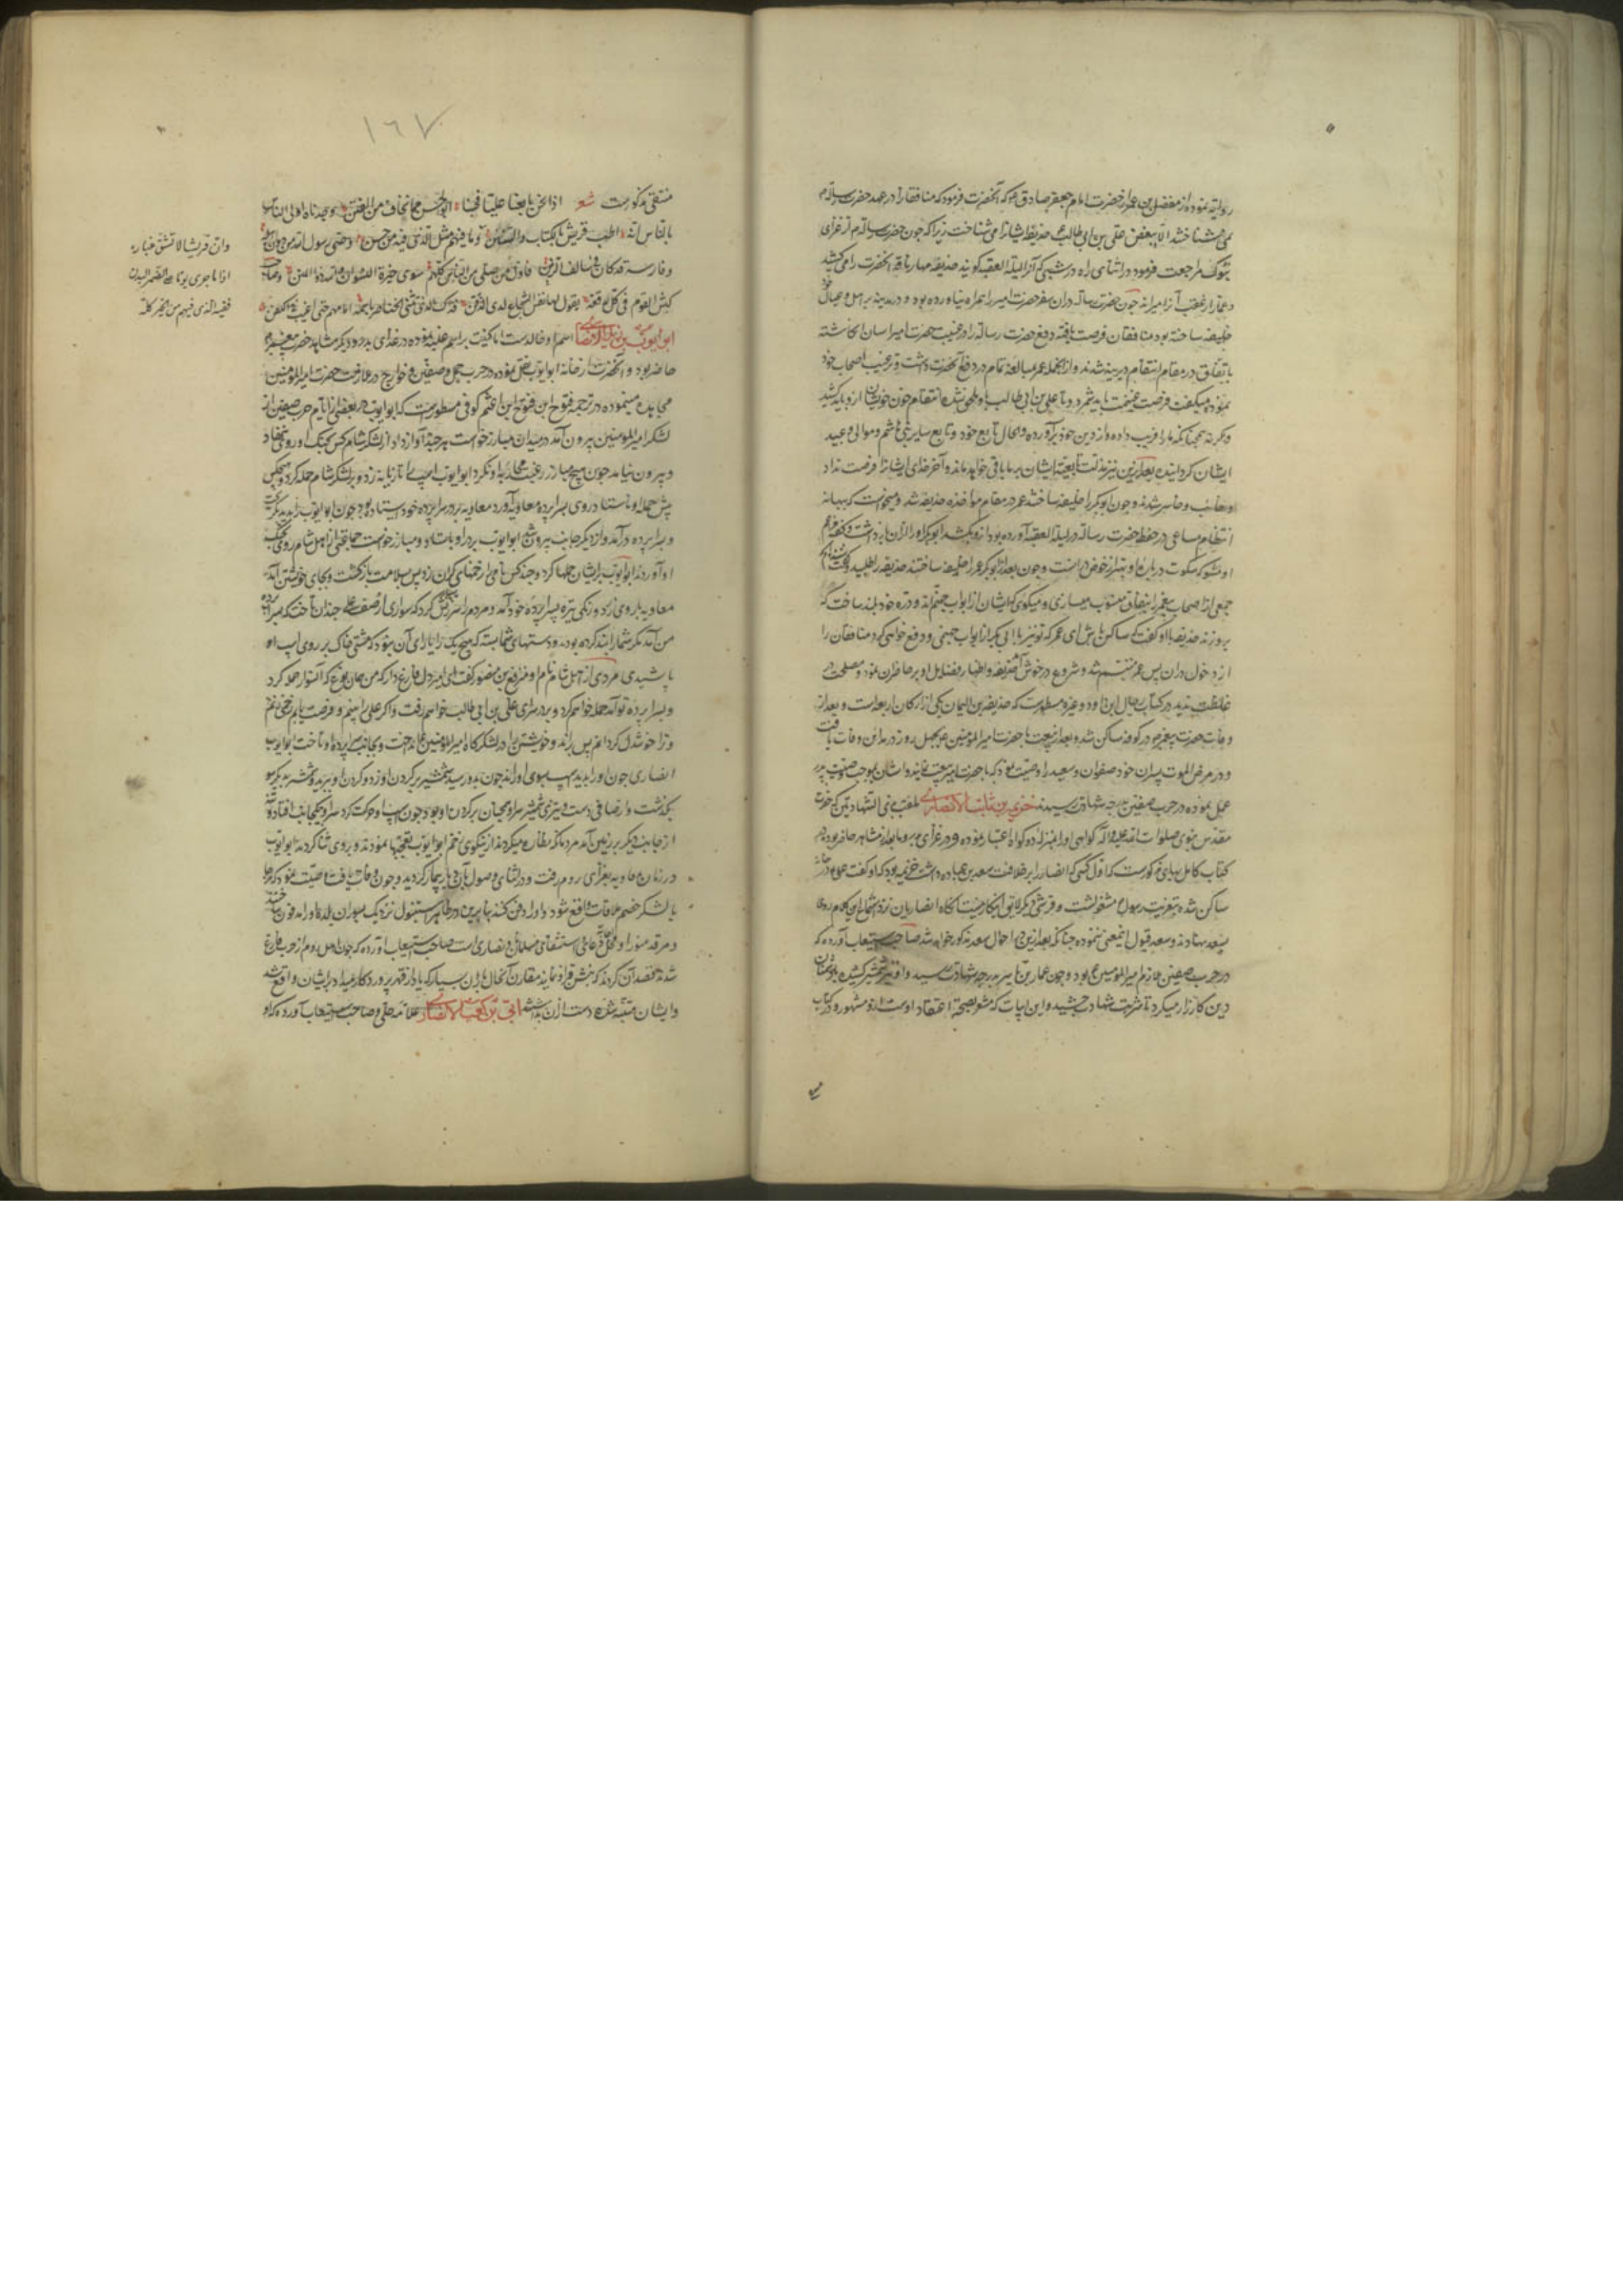 روایت نموده از مفضل بن عمر از حضرت امام جعفر صادق ع که آنحضرت فرمود که منافقان را در عهد حضرت رسالة م
نمی شناختند الا ببغض علی بن ابی طالب ع حذیفه ایشانرا می شناخت زیرا که چون حضرت رسالة م از غزای
تبوک مراجعت فرمود در اثنای راه در شبی که آنرا لیلة العقبه گویند حذیفه مهار ناقه آنحضرت را می کشید
و عمار از عقب آنرا میراند چون حضرت رسالة در ان سفر حضرت امیر را همراه نیاورده بود و در مدینه بر اهل و عیال خود
خلیفه ساخته بود منافقان فرصت یافته دفع حضرت رسالة را در غیبت حضرت امیر اسان انکاشته
باتفاق در مقام انتقام دیرینه شدند و از انجمله عمر مبالغه تمام در دفع آنحضرت داشت و ترغیب اصحاب خود
نموده میکفت فرصت غنیمت باید شمرد و تا علی بن ابی طالب باو ملحق نشده انتقام خون خویشان ازو باید کشید
و کرنه همچنانکه ما را فریب داده و از دین خود برآورده و الحال تابع خود و تابع سایر بنی هاشم و موالی و عبید
ایشان کردانیده بعد ازین نیز مذلت تابعیت ایشان بر ما باقی خواهد ماند و آخر خدای ایشانرا فرصت نداد
و خائب و خاسر شدند و چون ابو بکر را خلیفه ساختند عمر در مقام مواخذه حذیفه شد و میخواست که ببهانه
انتظام مساعی در حفظ حضرت رسالة در لیلة العقبه آورده بود ازو بکشد ابو بکر او را ازان بازداشت و کفت
جمعی از اصحاب پیغمبر را بنفاق منسوب میسازی و میکوی که ایشان از ابواب جهنم اند و دره خود بلند ساخت که
بر وزند حذیفه باو کفت که ساکن باش ای عمر که تو نیز بابی دیکر از ابواب جهنمی و دفع خواهی کرد منافقان را
از دخول دران پس عمر متبسم شد و شروع در خوش آمد حذیفه و اظهار فضایل او بر حاضران نمود و مصلحت در
غلظت ندید در کتاب رجال ابن داود و غیره مسطورست که حذیفه بن الیمان یکی از ارکان اربعه است و بعد از
وفات حضرت پیغمبر م در کوفه ساکن شد و بعد از بیعت با حضرت امیر المؤمنین ع بچهل روز در مداین وفات یافت
و در مرض الموت پسران خود صفوان و سعید را وصیت نمود که با حضرت امیر بیعت نمایند و ایشان بموجب وصیت پدر
عمل نموده در حرب صفین بدرجه شهادت رسیدند خزیمه بن ثابت الانصاری ملقب بذی الشهادتین که حضرت
مقدس نبوی صلوات الله علیه و آله کواهی او را بمنزله دو کواه اعتبار نموده و در غزای بدر و ما بعد از مشاهد حاضر بود در
کتاب کامل بهای مذکورست که اول کسی که انصار را بر خلافت سعد بن عباده داشت خزیمه بود که او کفت علی م در خانه
ساکن شده بتعزیت رسول م مشغولست و قرشی دیکر لایق اینکار نیست انکاه انصاریان نزد استماع این کلام روی
بسعد نهادند و سعد قبول اینمعنی ننموده چنانکه بعد ازین در احوال سعد مذکور خواهد شد صاحب استیعاب آورده که
در حرب صفین ملازم امیر المؤمنین ع بود و چون عمار بن یاسر بدرجه شهادت رسید او نیز شمشیر کشیده با دشمنان
دین کارزار میکرد تا شربت شهادت چشید و این ابیات که مشعر بصحة اعتقاد اوست ازو مشهور و در کتاب
۱٦۷
منتقی مذکورست شعر اذا نحن بایعنا علیا فحسبنا ابو حسن مما نخاف من الفتن وجدناه اولی الناس
بالناس انه اطب قریش بالکتاب و السنن و ما فیهم مثل الذی فیه من حسن وصی رسول الله من دون اهله
و فارسه قد کان فی سالف الزمن فاول من صلی من الناس کلهم سوی خیرة النسوان و الله ذو المنن و صاحب
کبش القوم فی کل وقعة یکون لها نفس الشجاع لدی الذقن فذاک الذی تثنی الخناصر باسمه امامهم حتی اغیب فی الکفن
ابو ایوب بن زید الانصاری اسم او خالدست اما کنیت بر اسم غلبه نموده در غزای بدر و دیکر مشاهد حضرت پیغمبر م
حاضر بود و آنحضرت از خانه ابو ایوب نقل نموده در حرب جمل و صفین و خوارج در ملازمت حضرت امیر المؤمنین
مجاهده مینموده در ترجمه فتوح ابن اعثم کوفی مسطورست که ابو ایوب در بعضی از ایام حرب صفین از
لشکر امیر المؤمنین بیرون آمد در میدان مبارز خواست هر چند آواز داد از لشکر شام کس بجنک او رو ننهاد
و بیرون نیامد چون هیچ مبارز رغبت محاربه او نکرد ابو ایوب اسپ را تازیانه زد و بر لشکر شام حمله کرد و هیچکس
پیش حمله او نایستاد روی بسراپرده معاویه آورد معاویه بر در سراپرده خود ایستاده بود چون ابو ایوب را بدید بکریخت
و بسراپرده درآمد و از دیکر جانب بیرون شد ابو ایوب بر در او بایستاد و مبارز خواست جماعتی از اهل شام روی بجنک
او آوردند ابو ایوب بر ایشان حملها کرد و چند کس نامی را زخمهای کران زد پس بسلامت بازکشت و بجای خویشتن آمد
معاویه با روی زرد و رنکی تیره بسراپرده خود آمد و مردم را سرزنش کرد که سواری از صف علی چندان تاخت که بسراپرده
من آمد مکر شما را بند کرده بودند و دستهای شما بسته که هیچ یک را یارای آن نبود که مشتی خاک بر روی اسپ او
پاشیدی مردی از اهل شام نام او مترفع بن منصور کفت ای امیر دل فارغ دار که من همان نوع که آن سوار حمله کرد
و بسراپرده تو آمد حمله خواهم کرد و بر در سرای علی بن ابی طالب خواهم رفت و اکر علی را بینم و فرصت یابم زخمی زنم
و ترا خوشدل کردانم پس براند و خویشتن را در لشکرکاه امیر المؤمنین انداخت و بجانب سراپرده او تاخت ابو ایوب
انصاری چون او را بدید اسپ بسوی او راند چون بدو رسید شمشیر بر کردن او زد و کردن او ببرید و شمشیر بدیکر سو
بکذشت و از صافی دست و تیزی شمشیر سر او همچنان بر کردن او بود چون اسپ او حرکت کرد سر او بیکجانب افتاد و تن
از جانب دیکر بر زمین آمد مردمانکه نظاره میکردند از نیکوی زخم ابو ایوب تعجبها نمودند و بر وی ثنا کردند ابو ایوب
در زمان معاویه بغزای روم رفت و در اثنای وصول بآن دیار بیمار کردید و چون وفات یافت وصیت نمود که هر جا
با لشکر خصم ملاقات واقع شود او را دفن کنند بنا برین در ظاهر استنبول نزدیک بسور ان بلده او را مدفون ساختند
و مرقد منور او محل دعای استشفای مسلمانان و نصاری است صاحب استیعاب آورده که چون اهل روم از حرب فارغ
شدند قصد آن کردند که نبش قبر او نمایند مقارن آنحال باران بسیار که یاد از قهر پروردکار میداد بر ایشان واقع شد
و ایشان متنبه شده دست ازان بداشتند ابی بن کعب الانصاری علامه حلی و صاحب استیعاب آورده که او
وان قریشا لا تشق غباره
اذا ما جری یوما علی الضمر البدن
ففیه الذی فیهم من الخیر کله